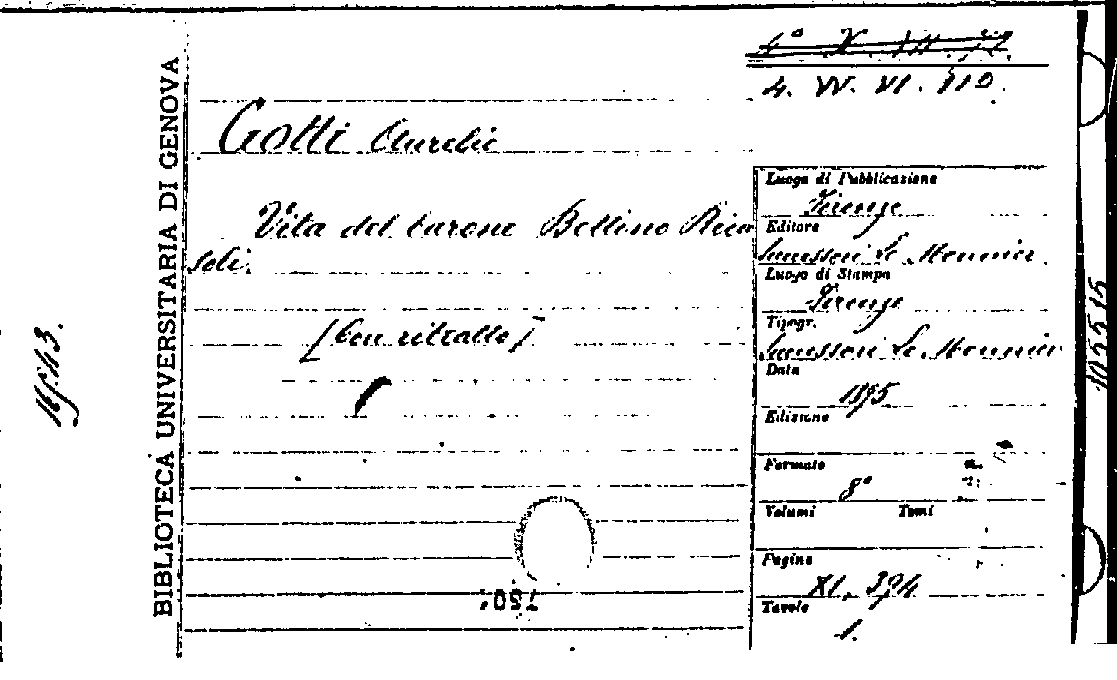 4. VV. VI. 110.
Gotti Aurelio
Vita del barone Bettino Rica
soli.
[Con ritratto]
BIBLIOTECA UNIVERSITARIA DI GENOVA
Luogo di Pubblicazione
Firenze
Editore
Successori Le Monnier
Luogo di Stampa
Firenze
Tipogr.
Successori Le Monnier
Data
1895
Edizione
Formato
8°
Volumi Tomi
Pagine
XI, 394
Tavole
1.
750.
105515